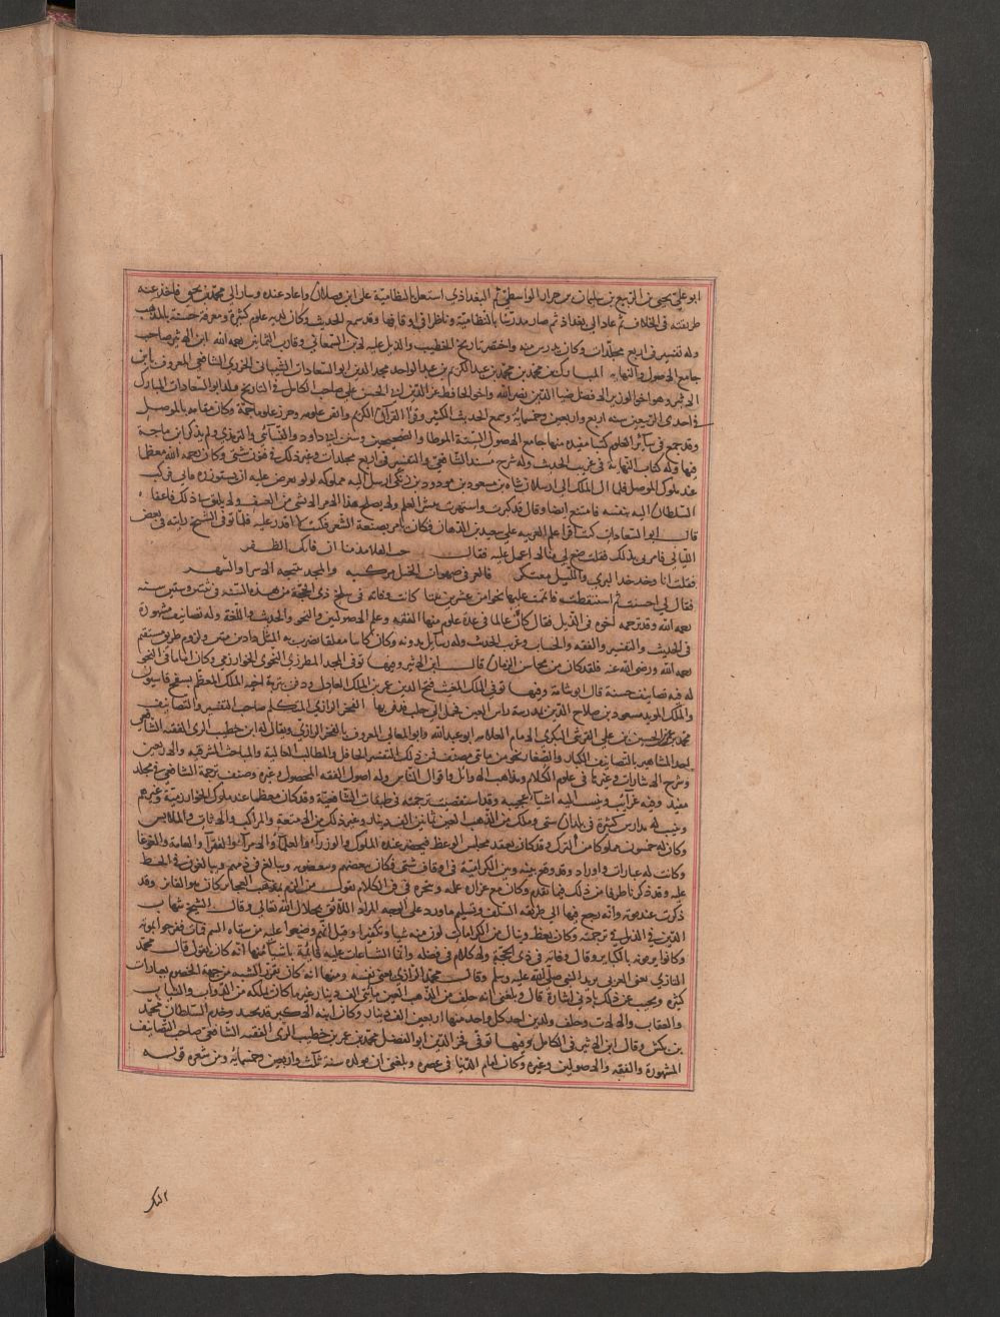 ابو علي يحيى بن الربيع بن سليمان بن حراز الواسطي ثم البغداذي اشتغل بالنظامية على ابن فضلان واعاد عنده وسار الى محمد بن يحيى فاخذ عنه
طريقته في الخلاف ثم عاد الى بغداذ ثم صار مدرسا بالنظامية وناظرا في اوقافها وقد سمع الحديث وكان لديه علوم كثيرة ومعرفة حسنة بالمذهب
وله تفسير في اربع مجلدات وكان يدرس منه واختصر تاريخ الخطيب والذيل عليه لابن السمعاني وقارب الثمانين رحمه الله ابن الاثير صاحب
جامع الاصول والنهاية المبارك بن محمد بن محمد بن عبد الكريم بن عبد الواحد مجد الدين ابو السعادات الشيباني الجزري الشافعي المعروف بابن
الاثير وهو اخو الوزير الافضل ضياء الدين نصر الله واخو الحافظ عز الدين ابي الحسن علي صاحب الكامل في التاريخ ولد ابو السعادات المبارك
في احدى الربيعين سنة اربع واربعين وخمسمائة وسمع الحديث الكثير وقرا القرآن الكريم واتقن علومه وحرر علوما جمة وكان مقامه بالموصل
وقد جمع في سائر العلوم كتبا مفيدة منها جامع الاصول الستة الموطا والصحيحين وسنن ابي داود والنسائي والترمذي ولم يذكر ابن ماجة
فيها وله كتاب النهاية في غريب الحديث وله شرح مسند الشافعي والتفسير في اربع مجلدات وغير ذلك في فنون شتى وكان رحمه الله معظما
عند ملوك الموصل فلما آل الملك الى ارسلان شاه بن مسعود بن مودود بن زنكي ارسل اليه مملوكه لولو يعرض عليه ان يستوزره فابى فركب
السلطان اليه بنفسه فامتنع ايضا وقال قد كبرت واشتهرت بنشر العلم ولا يصلح هذا الامر الا بشي من العسف ولا يليق بي ذلك فاعفاه
قال ابو السعادات كنت اقرا علم العربية على سعيد بن الدهان فكان يامر بصنعة الشعر فكنت لا اقدر عليه فلما توفي الشيخ رايته في بعض
الليالي فامرني بذلك فقلت ضع لي مثالا اعمل عليه فقال حب العلا مدمنا ان فاتك الظفر
فقلت انا وخد خد الثرى والليل معتكر فالعز في صهوات الخيل مركبه والمجد ينتجه الاسرا والسهر
فقال لي احسنت ثم استيقظت فاتممت عليها نحوا من عشرين بيتا كانت وفاته في سلخ ذي الحجة من هذه السنة في ثنتين وستين سنة
رحمه الله وقد ترجمه اخوه في الذيل فقال كان عالما في عدة علوم منها الفقه وعلم الاصولين والنحو والحديث واللغة وله تصانيف مشهورة
في الحديث والتفسير والفقه والحساب وغريب الحديث وله رسايل مدونة وكان كاتبا مفلقا يضرب به المثل ذا دين متين ولزوم طريق مستقيم
رحمه الله ورضي الله عنه فلقد كان من محاسن الزمان قال ابن الاثير وفيها توفي المجد المطرزي النحوي الخوارزمي وكان اماما في النحو
له فيه تصانيف حسنة قال ابو شامة وفيها توفي الملك المغيث فتح الدين عمر بن الملك العادل ودفن بتربة اخيه الملك المعظم بسفح قاسيون
والملك المويد مسعود بن صلاح الدين بمدرسة راس العين فحمل الى حلب فدفن بها الفخر الرازي المتكلم صاحب التفسير والتصانيف
محمد بن عمر بن الحسين بن علي القرشي البكري الامام العلامة ابو عبد الله وابو المعالي المعروف بالفخر الرازي ويقال له ابن خطيب الري الفقيه الشافعي
احد المشاهير بالتصانيف الكبار والصغار نحو من مائتي مصنف فمن ذلك التفسير الحافل والمطالب العالية والمباحث الشرقية والاربعين
وشرح الاشارات وغيرها في علوم الكلام ومذاهب الاوائل واقوال الناس وله اصول الفقه المحصول وغيره وصنف ترجمة الشافعي في مجلد
مفيد وفيه غرايب وينسب اليه اشيا عجيبة وقد استقصيت ترجمته في طبقات الشافعية وقد كان معظما عند ملوك الخوارزمية وغيرهم
وبنيت له مدارس كثيرة في بلدان شتى وملك من الذهب العين ثمانين الف دينار وغير ذلك من الامتعة والمراكب والاثاث والملابس
وكان له خمسون مملوكا من الترك وقد كان يعقد مجلس الوعظ فيحضر عنده الملوك والوزراء والعلماء والامراء والفقراء والعامة والغوغا
وكانت له عبارات واوراد وقد وقع بينه وبين الكرامية في اوقات شتى فكان يبغضهم ويبغضونه ويبالغ في ذمهم ويبالغون في الحط
عليه وقد ذكرنا طرفا من ذلك فيما تقدم وكان مع غزارة علمه وتبحره في فن الكلام يقول من لزم مذهب العجايز كان هو الفايز وقد
ذكرت عند موته وانه رجع فيها الى طريقة السلف وتسليم ما ورد على الوجه المراد اللائق بجلال الله تعالى وقال الشيخ شهاب
الدين في الذيل في ترجمته وكان يعظ وينال من الكرامية وينالون منه سبا وتكفيرا وقيل انهم وضعوا عليه من سقاه السم فمات ففرحوا بموته
وكانوا يرمونه بالكبائر وقال وفاته في ذي الحجة ولا كلام في فضله وانما الشناعات عليه قائمة باشيا منها انه كان يقول قال محمد
التازي يعني العربي يريد النبي صلى الله عليه وسلم وقال محمد الرازي يعني نفسه ومنها انه كان يقرر الشبه من جهة الخصم بعبارات
كثيرة ويجيب عن ذلك بادنى اشارة قال وبلغني انه خلف من الذهب العين مائتي الف دينار غير ما كان يملكه من الدواب والثياب
والعقار والآلات وخلف ولدين اخذ كل واحد منهما اربعين الف دينار وكان ابنه الاكبر قد تجند وخدم السلطان محمد
بن تكش وقال ابن الاثير في الكامل وفيها توفي فخر الدين ابو الفضل محمد بن عمر بن خطيب الري الفقيه الشافعي صاحب التصانيف
المشهورة والفقه والاصولين وغيره وكان امام الدنيا في عصره وبلغني ان مولده سنة ثلث واربعين وخمسمائة ومن شعره قوله